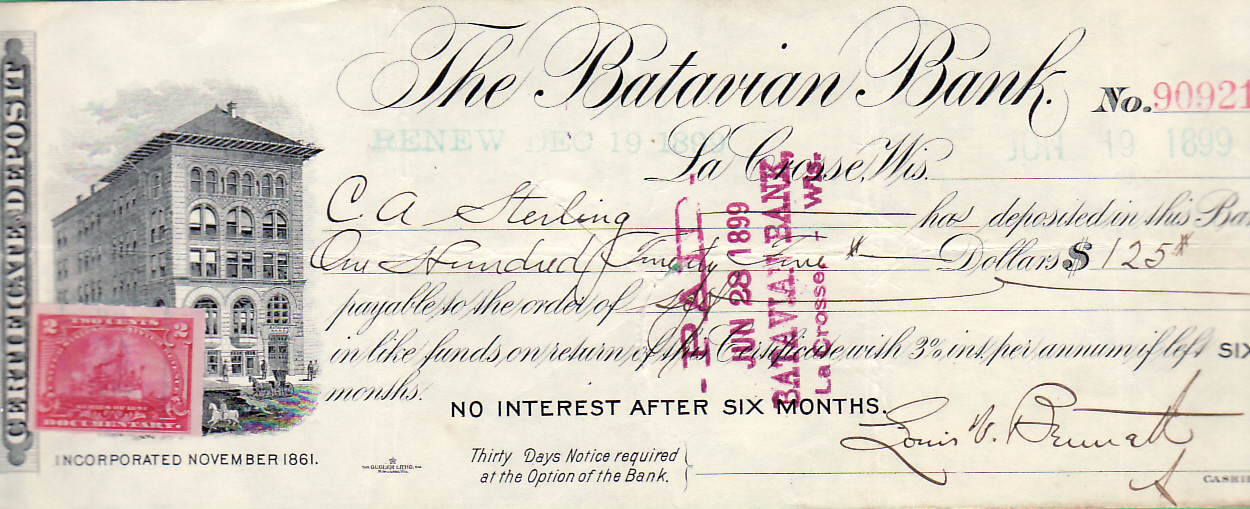 CERTIFICATE DEPOSIT
The Batavian Bank.
No. 90921
RENEW DEC 19 1899
JUN 19 1899
La Crosse, Wis.
C. A. Sterling has deposited in this Ba
One Hundred Twenty Five Dollars $ 125
payable to the order of
in like funds on return of this Certificate with 3% int. per annum if left SIX
months.
NO INTEREST AFTER SIX MONTHS.
- PAID -
JUN 28 1899
BATAVIAN BANK,
La Crosse, Wis.
TWO CENTS
2 2
SERIES OF 1898
DOCUMENTARY.
INCORPORATED NOVEMBER 1861.
THE GUGLER LITHO. CO.
Thirty Days Notice required
at the Option of the Bank.
CASHI